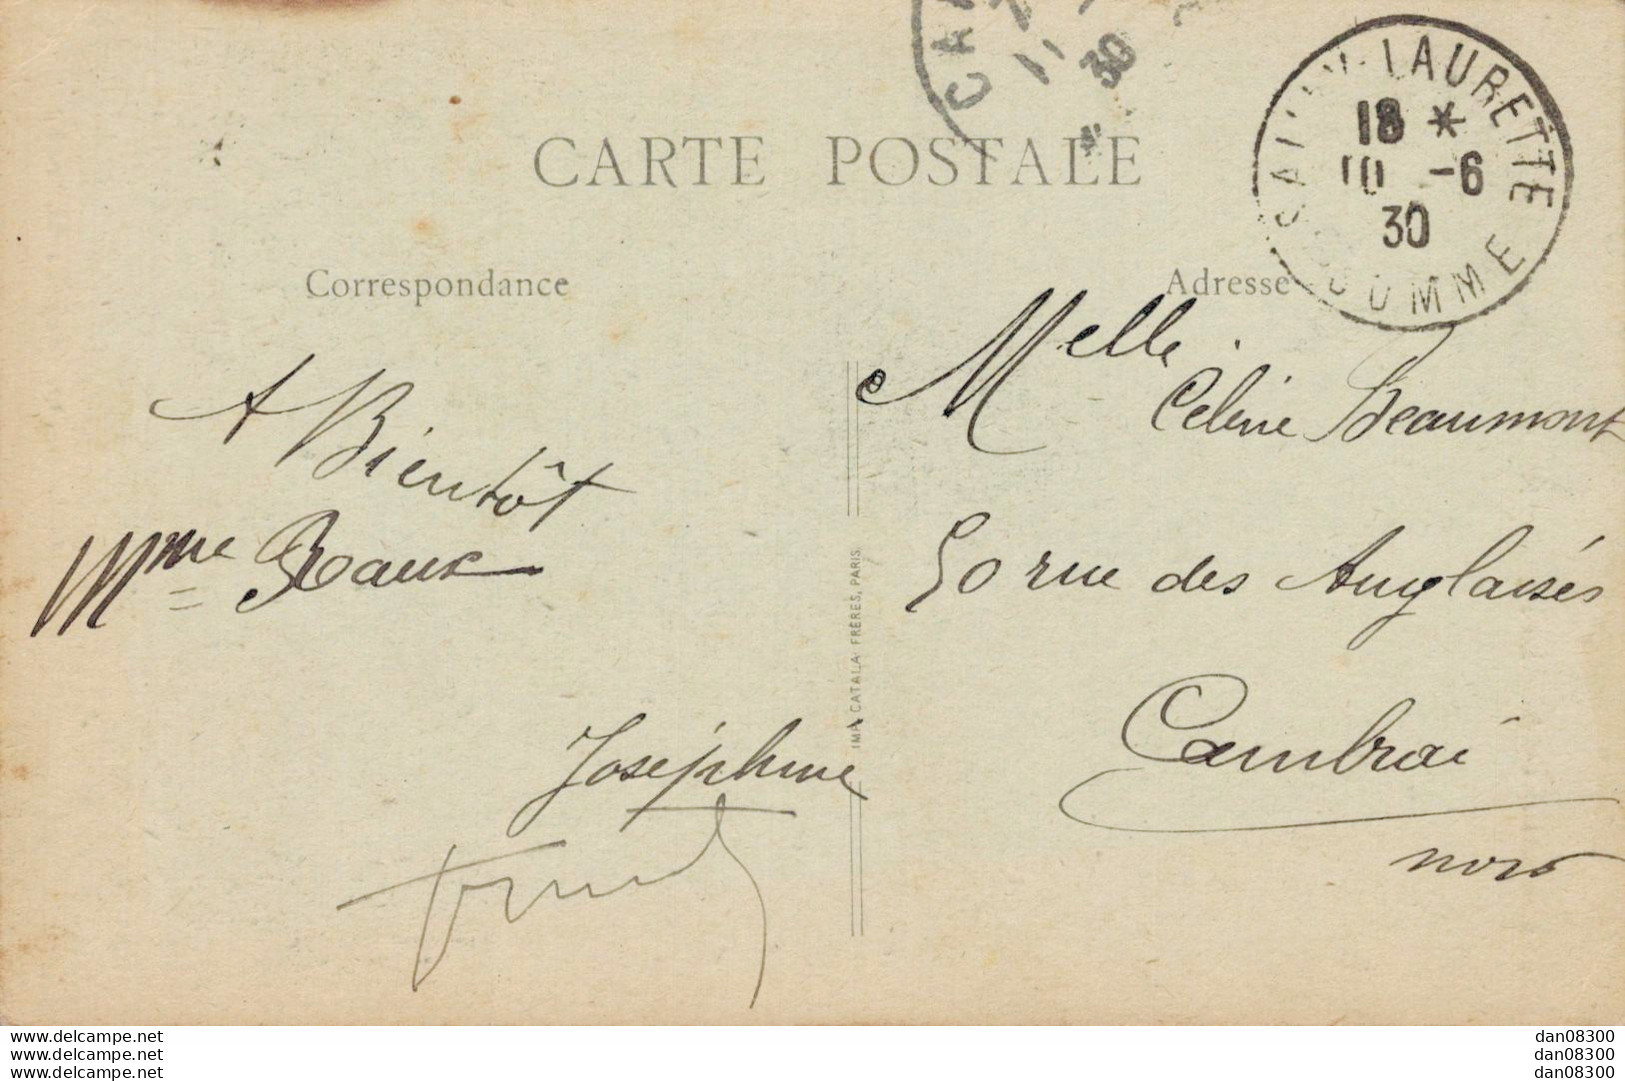 CARTE POSTALE
Correspondance
Adresse
CA
11
30
SAILLY-LAURETTE
18 *
10 -6
30
SOMME
A Bientôt
Mme Beaux
Joséphine
IMP. CATALA FRÈRES, PARIS.
Melle.
Celine Beaumont
50 rue des Anglaisés
Cambrai
nord
www.delcampe.net
www.delcampe.net
www.delcampe.net
dan08300
dan08300
dan08300